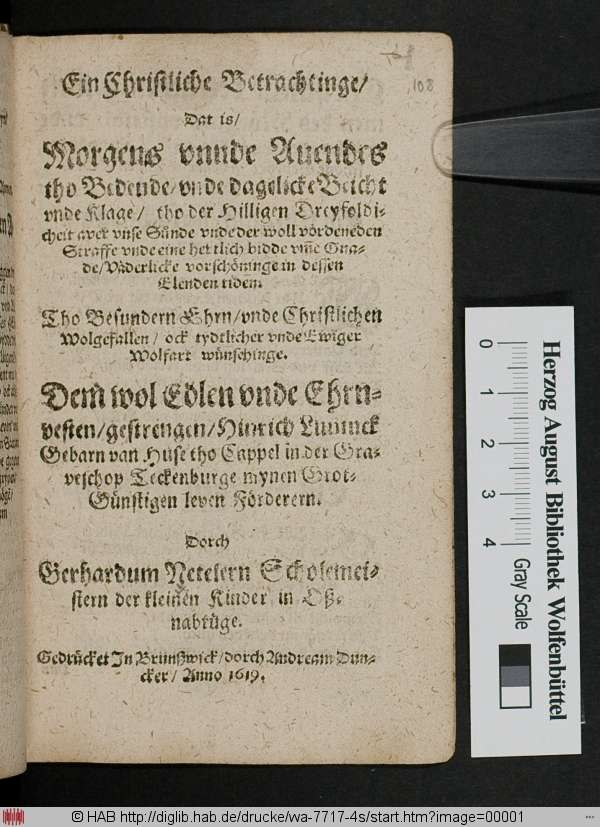 108
Ein Christliche Betrachtinge/
Dat is/
Morgens vnnde Auendes
tho Bedende/ vnde dagelicke Beicht
vnde Klage/ tho der Hilligen Dreyfoldi-
cheit aver vnse Sünde vnde der woll vördeneden
Straffe vnde eine hertlich bidde vm̄e Gna-
de/ Väderlicke vorschöninge in dessen
Elenden tiden.
Tho Besundern Ehrn/ vnde Christlichen
Wolgefallen/ ock tydtlicher vnde Ewiger
Wolfart wünschinge.
Dem wol Edlen vnde Ehrn-
vesten/ gestrengen/ Hinrich
Gebarn van Huse tho Cappel in der Gra-
veschop Teckenburge mynen Grot-
Günstigen leven Förderern.
Dorch
Gerhardum Netelern Scholemei-
stern der kleinen Kinder in Oß-
nabrüge.
Gedrücket In Brunßwick/ dorch Andream Dun-
cker/ Anno 1619.
0
1
2
3
4
Herzog August Bibliothek Wolfenbüttel
Gray Scale
© HAB http://diglib.hab.de/drucke/wa-7717-4s/start.htm?image=00001